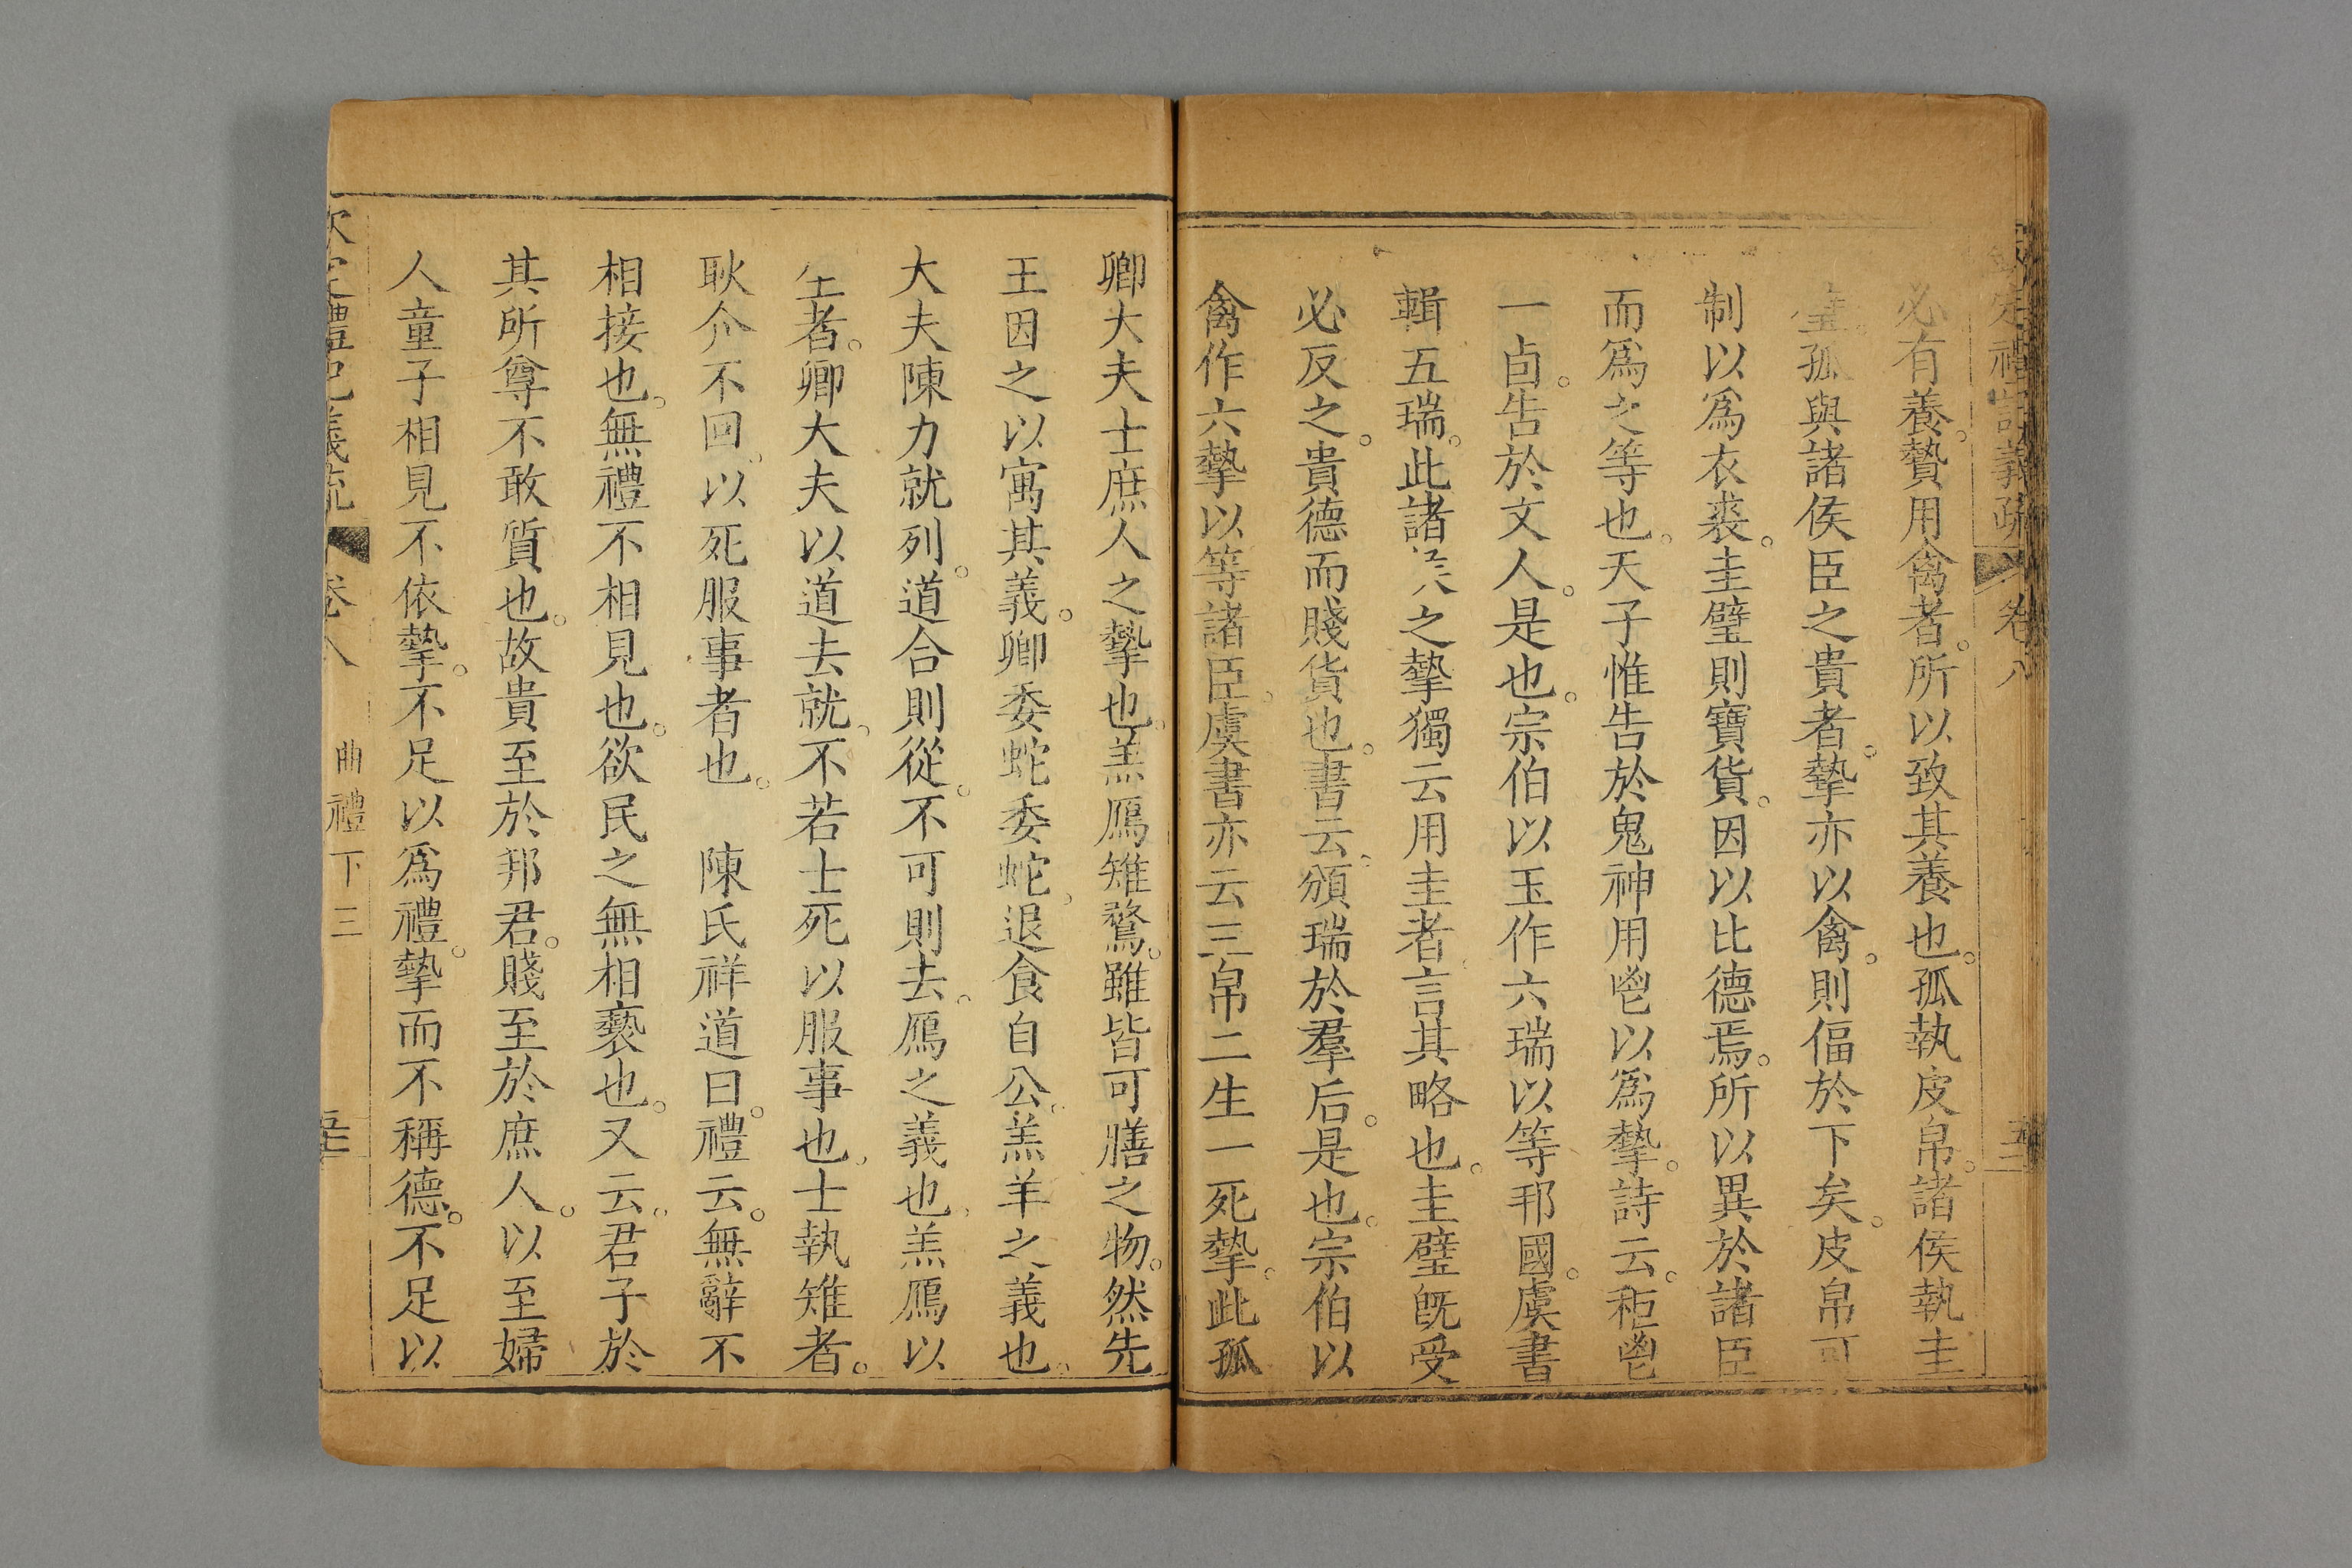 定禮記義疏 卷八
必有養。贄用禽者。所以致其養也。孤執皮帛。諸侯執圭
璧。孤與諸侯臣之貴者。摯亦以禽。則偪於下矣。皮帛可
制以爲衣裘。圭璧則寶貨。因以比德焉。所以異於諸臣
而爲之等也。天子惟告於鬼神用鬯以爲摯。詩云。秬鬯
一卣。告於文人。是也。宗伯以玉作六瑞以等邦國。虞書
輯五瑞。此諸侯之摯獨云用圭者言其略也。圭璧旣受
必反之。貴德而賤貨也。書云。頒瑞於羣后。是也。宗伯以
禽作六摯以等諸臣。虞書亦云三帛二生一死摯。此孤
卿大夫士庶人之摯也。羔鴈雉鶩。雖皆可膳之物。然先
王因之以寓其義。卿委蛇委蛇。退食自公。羔羊之義也。
大夫陳力就列。道合則從。不可則去。鴈之義也。羔鴈以
生者。卿大夫以道去就。不若士死以服事也。士執雉者。
耿介不回。以死服事者也。 陳氏祥道曰。禮云。無辭不
相接也。無禮不相見也。欲民之無相褻也。又云。君子於
其所尊不敢質也。故貴至於邦君。賤至於庶人。以至婦
人童子相見不依摯。不足以爲禮。摯而不稱德。不足以
禮記義疏 卷八 曲禮下三